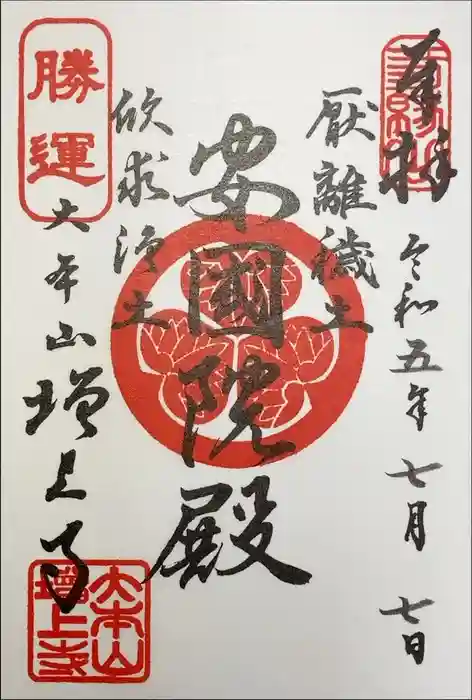 奉拝
令和五年七月七日
厭離穢土
安國院殿
欣求浄土
勝運
大本山増上寺
大本山
増上寺